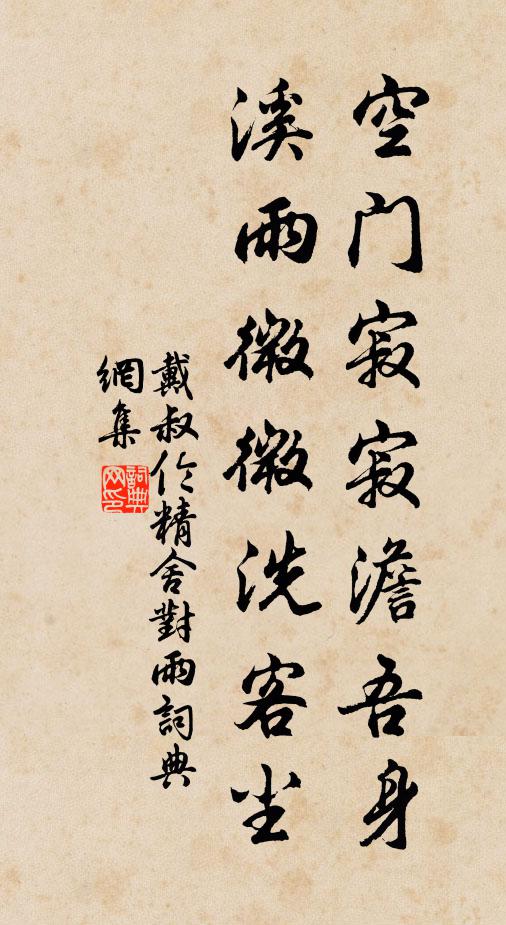 空门寂寂澹吾身
溪雨微微洗客尘
戴叔伦精舍對雨詞典
網集
詞典网印